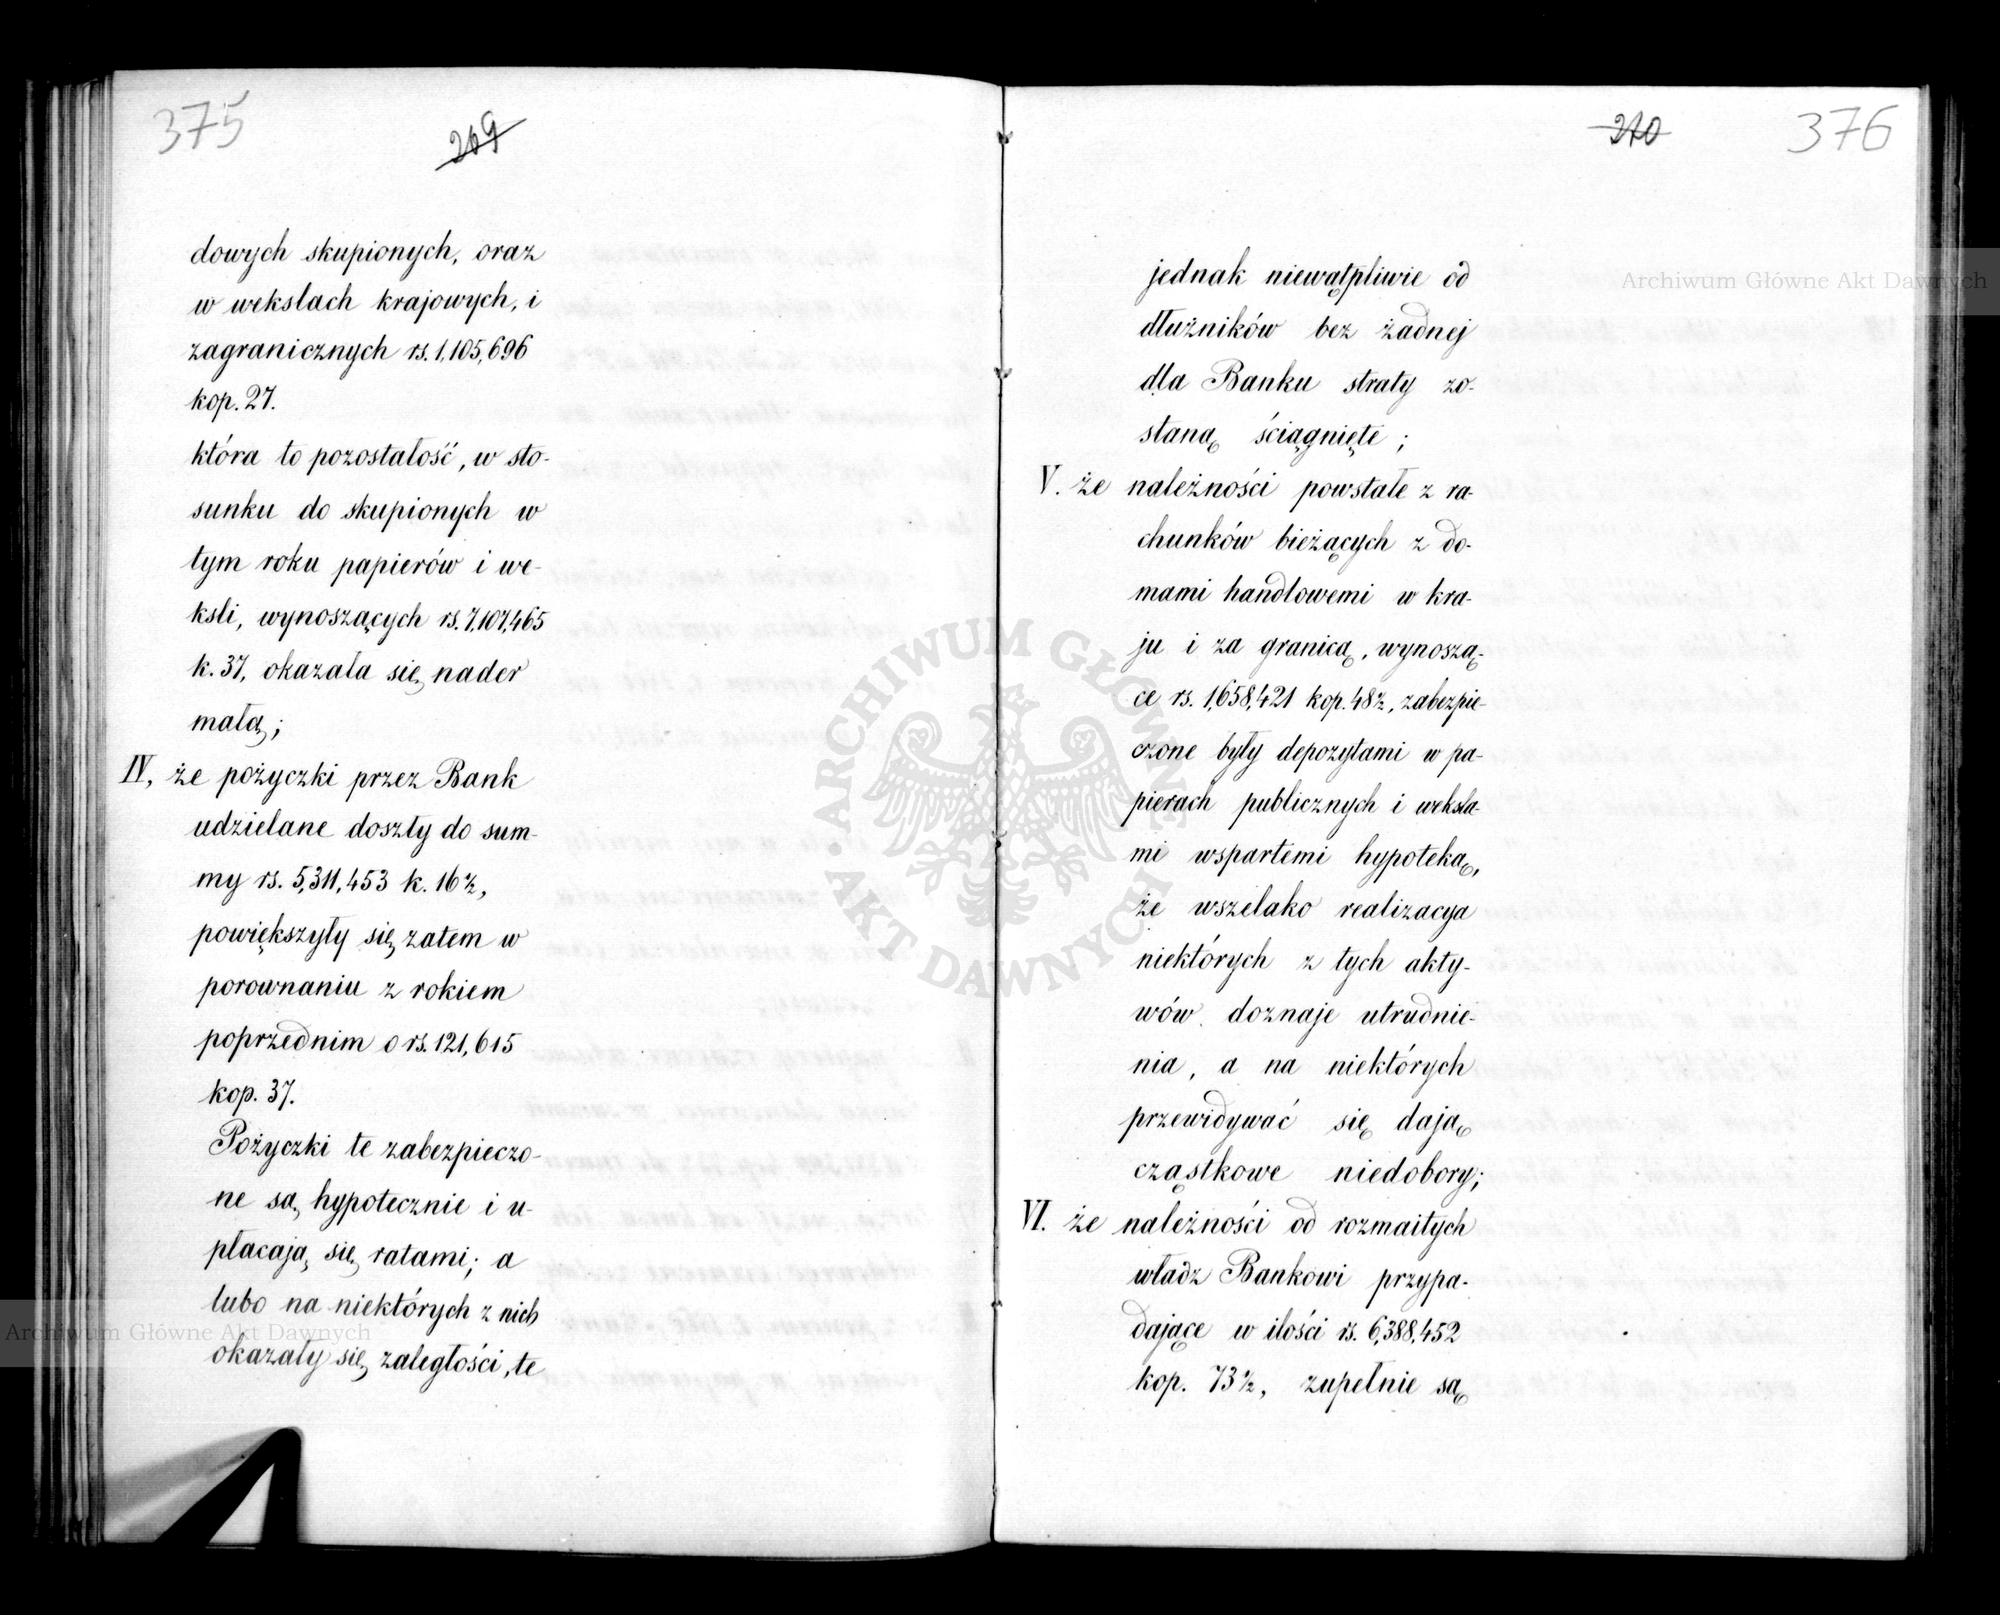 375
269
dowych skupionych, oraz
w wekslach krajowych, i
zagranicznych rs. 1,105,696
kop. 27.
która to pozostałość, w sto-
sunku do skupionych w
tym roku papierów i we-
ksli, wynoszących rs. 7,107,465
k. 37, okazała się nader
małą;
IV, że pożyczki przez Bank
udzielane doszły do sum-
my rs. 5,311,453 k. 16½,
powiększyły się zatem w
porownaniu z rokiem
poprzednim o rs. 121,615
kop. 37.
Pożyczki te zabezpieczo-
ne są hypotecznie i u-
płacają się ratami; a
lubo na niektórych z nich
okazały się zaległości, te
270
376
jednak niewątpliwie od
dłużników bez żadnej
dla Banku straty zo-
staną ściągnięte;
V. że należności powstałe z ra-
chunków bieżących z do-
mami handlowemi w kra-
ju i za granicą, wynoszą-
ce rs. 1,658,421 kop. 48½, zabezpie-
czone były depozytami w pa-
pierach publicznych i weksla-
mi wspartemi hypoteką,
że wszelako realizacya
niektórych z tych akty-
wów doznaje utrudnie-
nia, a na niektórych
przewidywać się dają
cząstkowe niedobory;
VI. że należności od rozmaitych
władz Bankowi przypa-
dające w ilości rs. 6,388,452
kop. 73½, zupełnie są
Archiwum Główne Akt Dawnych
Archiwum Główne Akt Dawnych
ARCHIWUM GŁÓWNE
AKT DAWNYCH